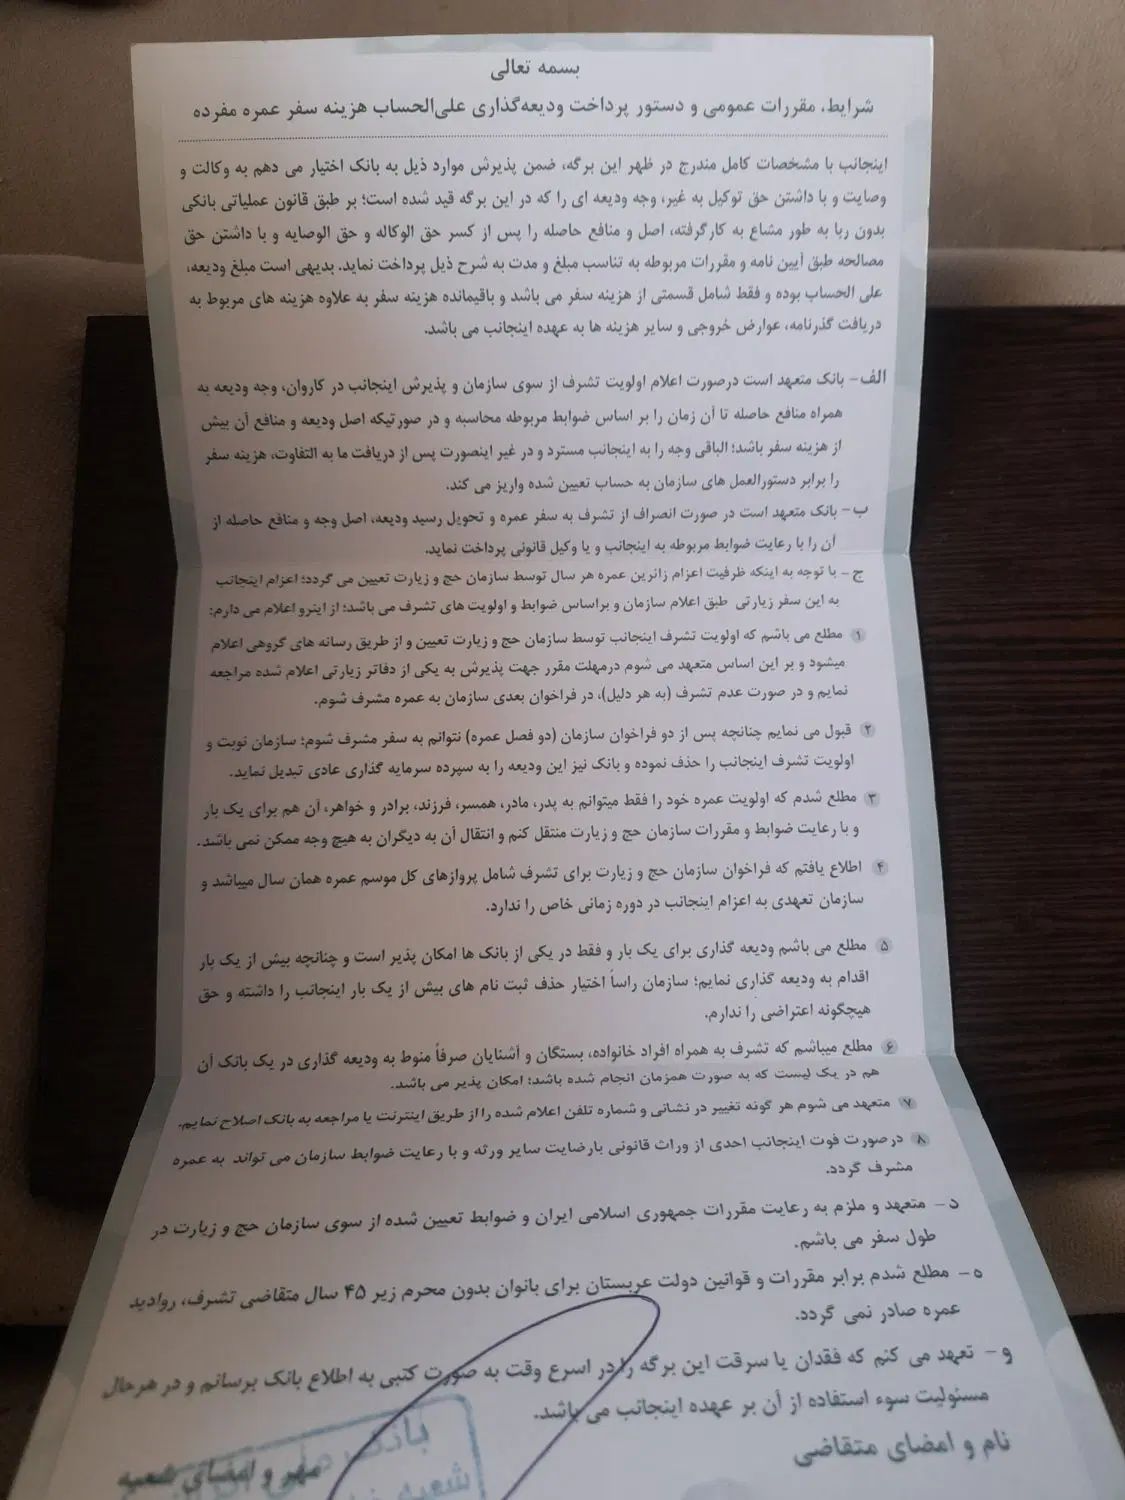 بسمه تعالی
شرایط، مقررات عمومی و دستور پرداخت ودیعه‌گذاری علی‌الحساب هزینه سفر عمره مفرده
اینجانب با مشخصات کامل مندرج در ظهر این برگه، ضمن پذیرش موارد ذیل به بانک اختیار می دهم به وکالت و
وصایت و با داشتن حق توکیل به غیر، وجه ودیعه ای را که در این برگه قید شده است؛ بر طبق قانون عملیاتی بانکی
بدون ربا به طور مشاع به کارگرفته، اصل و منافع حاصله را پس از کسر حق الوکاله و حق الوصایه و با داشتن حق
مصالحه طبق آیین نامه و مقررات مربوطه به تناسب مبلغ و مدت به شرح ذیل پرداخت نماید. بدیهی است مبلغ ودیعه،
علی الحساب بوده و فقط شامل قسمتی از هزینه سفر می باشد و باقیمانده هزینه سفر به علاوه هزینه های مربوط به
دریافت گذرنامه، عوارض خروجی و سایر هزینه ها به عهده اینجانب می باشد.
الف- بانک متعهد است درصورت اعلام اولویت تشرف از سوی سازمان و پذیرش اینجانب در کاروان، وجه ودیعه به
همراه منافع حاصله تا آن زمان را بر اساس ضوابط مربوطه محاسبه و در صورتیکه اصل ودیعه و منافع آن بیش
از هزینه سفر باشد؛ الباقی وجه را به اینجانب مسترد و در غیر اینصورت پس از دریافت ما به التفاوت، هزینه سفر
را برابر دستورالعمل های سازمان به حساب تعیین شده واریز می کند.
ب- بانک متعهد است در صورت انصراف از تشرف به سفر عمره و تحویل رسید ودیعه، اصل وجه و منافع حاصله از
آن را با رعایت ضوابط مربوطه به اینجانب و یا وکیل قانونی پرداخت نماید.
ج- با توجه به اینکه ظرفیت اعزام زائرین عمره هر سال توسط سازمان حج و زیارت تعیین می گردد؛ اعزام اینجانب
به این سفر زیارتی طبق اعلام سازمان و براساس ضوابط و اولویت های تشرف می باشد؛ از اینرو اعلام می دارم:
۱ مطلع می باشم که اولویت تشرف اینجانب توسط سازمان حج و زیارت تعیین و از طریق رسانه های گروهی اعلام
میشود و بر این اساس متعهد می شوم درمهلت مقرر جهت پذیرش به یکی از دفاتر زیارتی اعلام شده مراجعه
نمایم و در صورت عدم تشرف (به هر دلیل)، در فراخوان بعدی سازمان به عمره مشرف شوم.
۲ قبول می نمایم چنانچه پس از دو فراخوان سازمان (دو فصل عمره) نتوانم به سفر مشرف شوم؛ سازمان نوبت و
اولویت تشرف اینجانب را حذف نموده و بانک نیز این ودیعه را به سپرده سرمایه گذاری عادی تبدیل نماید.
۳ مطلع شدم که اولویت عمره خود را فقط میتوانم به پدر، مادر، همسر، فرزند، برادر و خواهر، آن هم برای یک بار
و با رعایت ضوابط و مقررات سازمان حج و زیارت منتقل کنم و انتقال آن به دیگران به هیچ وجه ممکن نمی باشد.
۴ اطلاع یافتم که فراخوان سازمان حج و زیارت برای تشرف شامل پروازهای کل موسم عمره همان سال میباشد و
سازمان تعهدی به اعزام اینجانب در دوره زمانی خاص را ندارد.
۵ مطلع می باشم ودیعه گذاری برای یک بار و فقط در یکی از بانک ها امکان پذیر است و چنانچه بیش از یک بار
اقدام به ودیعه گذاری نمایم؛ سازمان راساً اختیار حذف ثبت نام های بیش از یک بار اینجانب را داشته و حق
هیچگونه اعتراضی را ندارم.
۶ مطلع میباشم که تشرف به همراه افراد خانواده، بستگان و آشنایان صرفاً منوط به ودیعه گذاری در یک بانک آن
هم در یک لیست که به صورت همزمان انجام شده باشد؛ امکان پذیر می باشد.
۷ متعهد می شوم هر گونه تغییر در نشانی و شماره تلفن اعلام شده را از طریق اینترنت یا مراجعه به بانک اصلاح نمایم.
۸ درصورت فوت اینجانب احدی از وراث قانونی بارضایت سایر ورثه و با رعایت ضوابط سازمان می تواند به عمره
مشرف گردد.
د- متعهد و ملزم به رعایت مقررات جمهوری اسلامی ایران و ضوابط تعیین شده از سوی سازمان حج و زیارت در
طول سفر می باشم.
ه- مطلع شدم برابر مقررات و قوانین دولت عربستان برای بانوان بدون محرم زیر ۴۵ سال متقاضی تشرف، روادید
عمره صادر نمی گردد.
و- تعهد می کنم که فقدان یا سرقت این برگه را در اسرع وقت به صورت کتبی به اطلاع بانک برسانم و در هرحال
مسئولیت سوء استفاده از آن بر عهده اینجانب می باشد.
نام و امضای متقاضی
مهر و امضای شعبه
بانک
شعبه